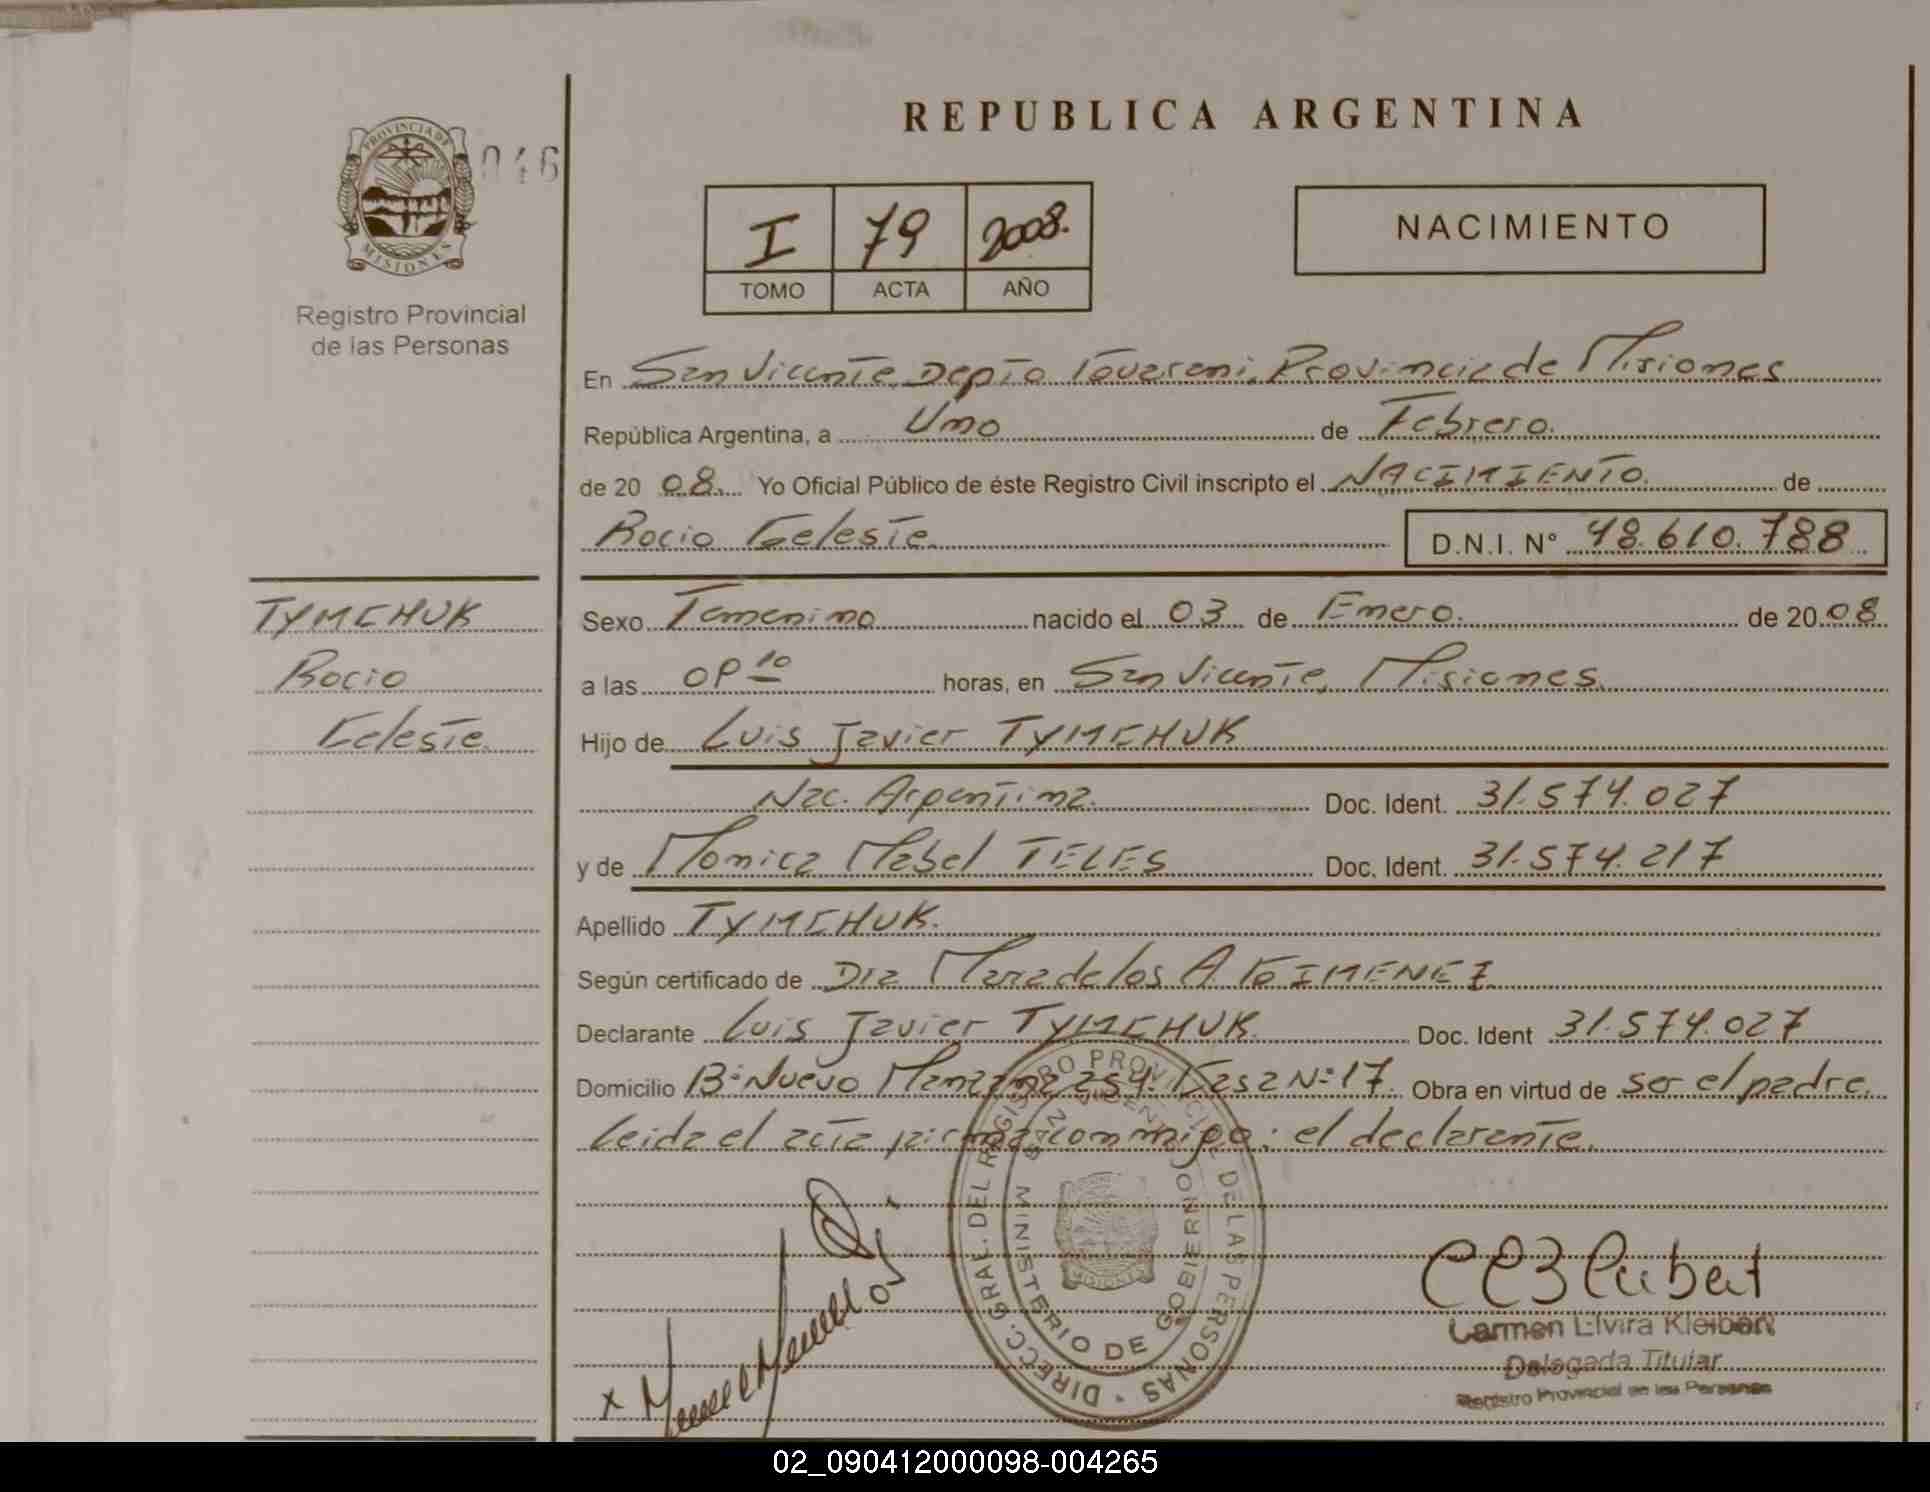 REPUBLICA ARGENTINA
PROVINCIA DE
MISIONES
046
Registro Provincial
de las Personas
I 79 2008.
TOMO ACTA AÑO
NACIMIENTO
En San Vicente, Depto Guarani, Provincia de Misiones
República Argentina, a Uno de Febrero.
de 20 08. Yo Oficial Público de éste Registro Civil inscripto el NACIMIENTO. de
Rocio Celeste D.N.I. N° 48.610.788
TYMCHUK
Rocio
Celeste
Sexo Femenino nacido el 03 de Enero. de 20 08
a las horas, en San Vicente, Misiones.
Hijo de Luis Javier TYMCHUK
Nac. Argentina. Doc. Ident. 31.574.027
y de Monica Mabel TELES Doc. Ident. 31.574.217
Apellido TYMCHUK.
Según certificado de Dra de los A.
Declarante Luis Javier TYMCHUK. Doc. Ident 31.574.027
Domicilio B° Nuevo Manzana 254. Casa N° 17. Obra en virtud de ser el padre.
Leida el acta firma conmigo: el declarante.
DIRECC. GRAL. DEL REGISTRO PROVINCIAL DE LAS PERSONAS
SAN VICENTE
MINISTERIO DE GOBIERNO
MISIONES
x
Carmen Elvira Kleibert
Delegada Titular
Registro Provincial de las Personas
02_090412000098-004265